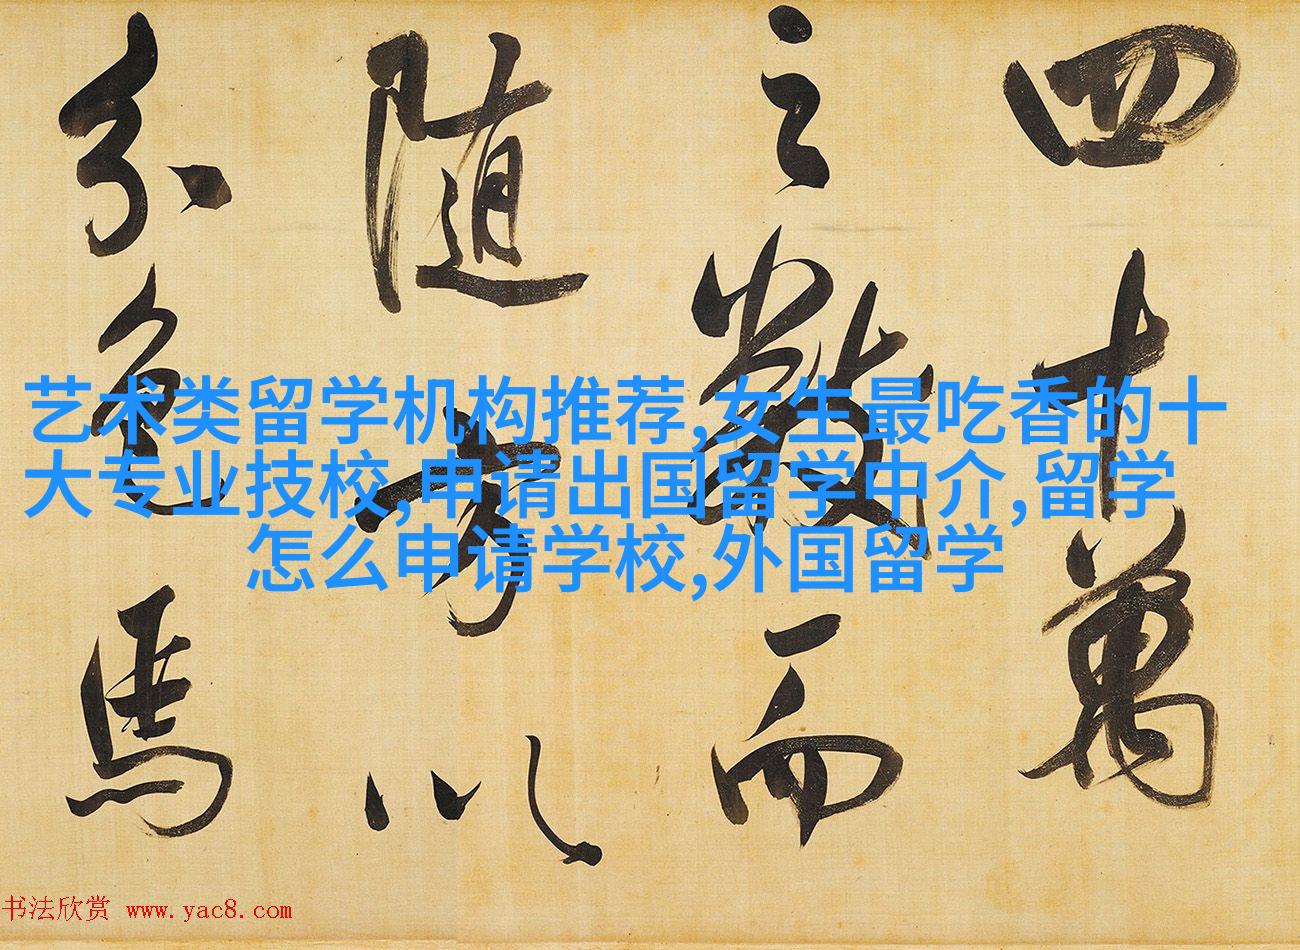 四十萬
之數而
隨方以
分色馬
艺术类留学机构推荐,女生最吃香的十
大专业技校,申请出国留学中介,留学
怎么申请学校,外国留学
书法欣赏 www.yac8.com